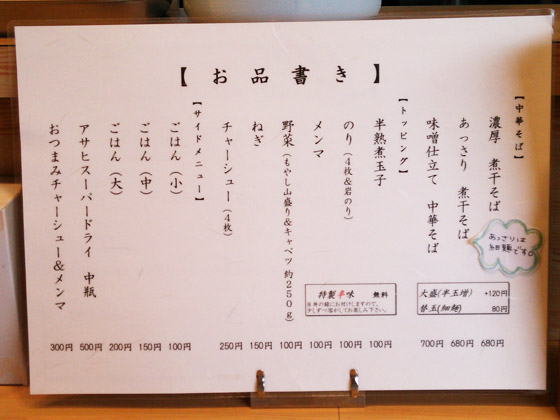 【お品書き】
【中華そば】
濃厚 煮干そば 680円
あっさり 煮干そば 680円
味噌仕立て 中華そば 700円
あっさりは
細麺です。
大盛(半玉増) +120円
替玉(細麺) 80円
【トッピング】
半熟煮玉子 100円
のり(4枚&岩のり) 100円
メンマ 100円
野菜(もやし山盛り&キャベツ 約250g) 100円
ねぎ 150円
チャーシュー(4枚) 250円
特製辛味 無料
【サイドメニュー】
ごはん(小) 100円
ごはん(中) 150円
ごはん(大) 200円
アサヒスーパードライ 中瓶 500円
おつまみチャーシュー&メンマ 300円